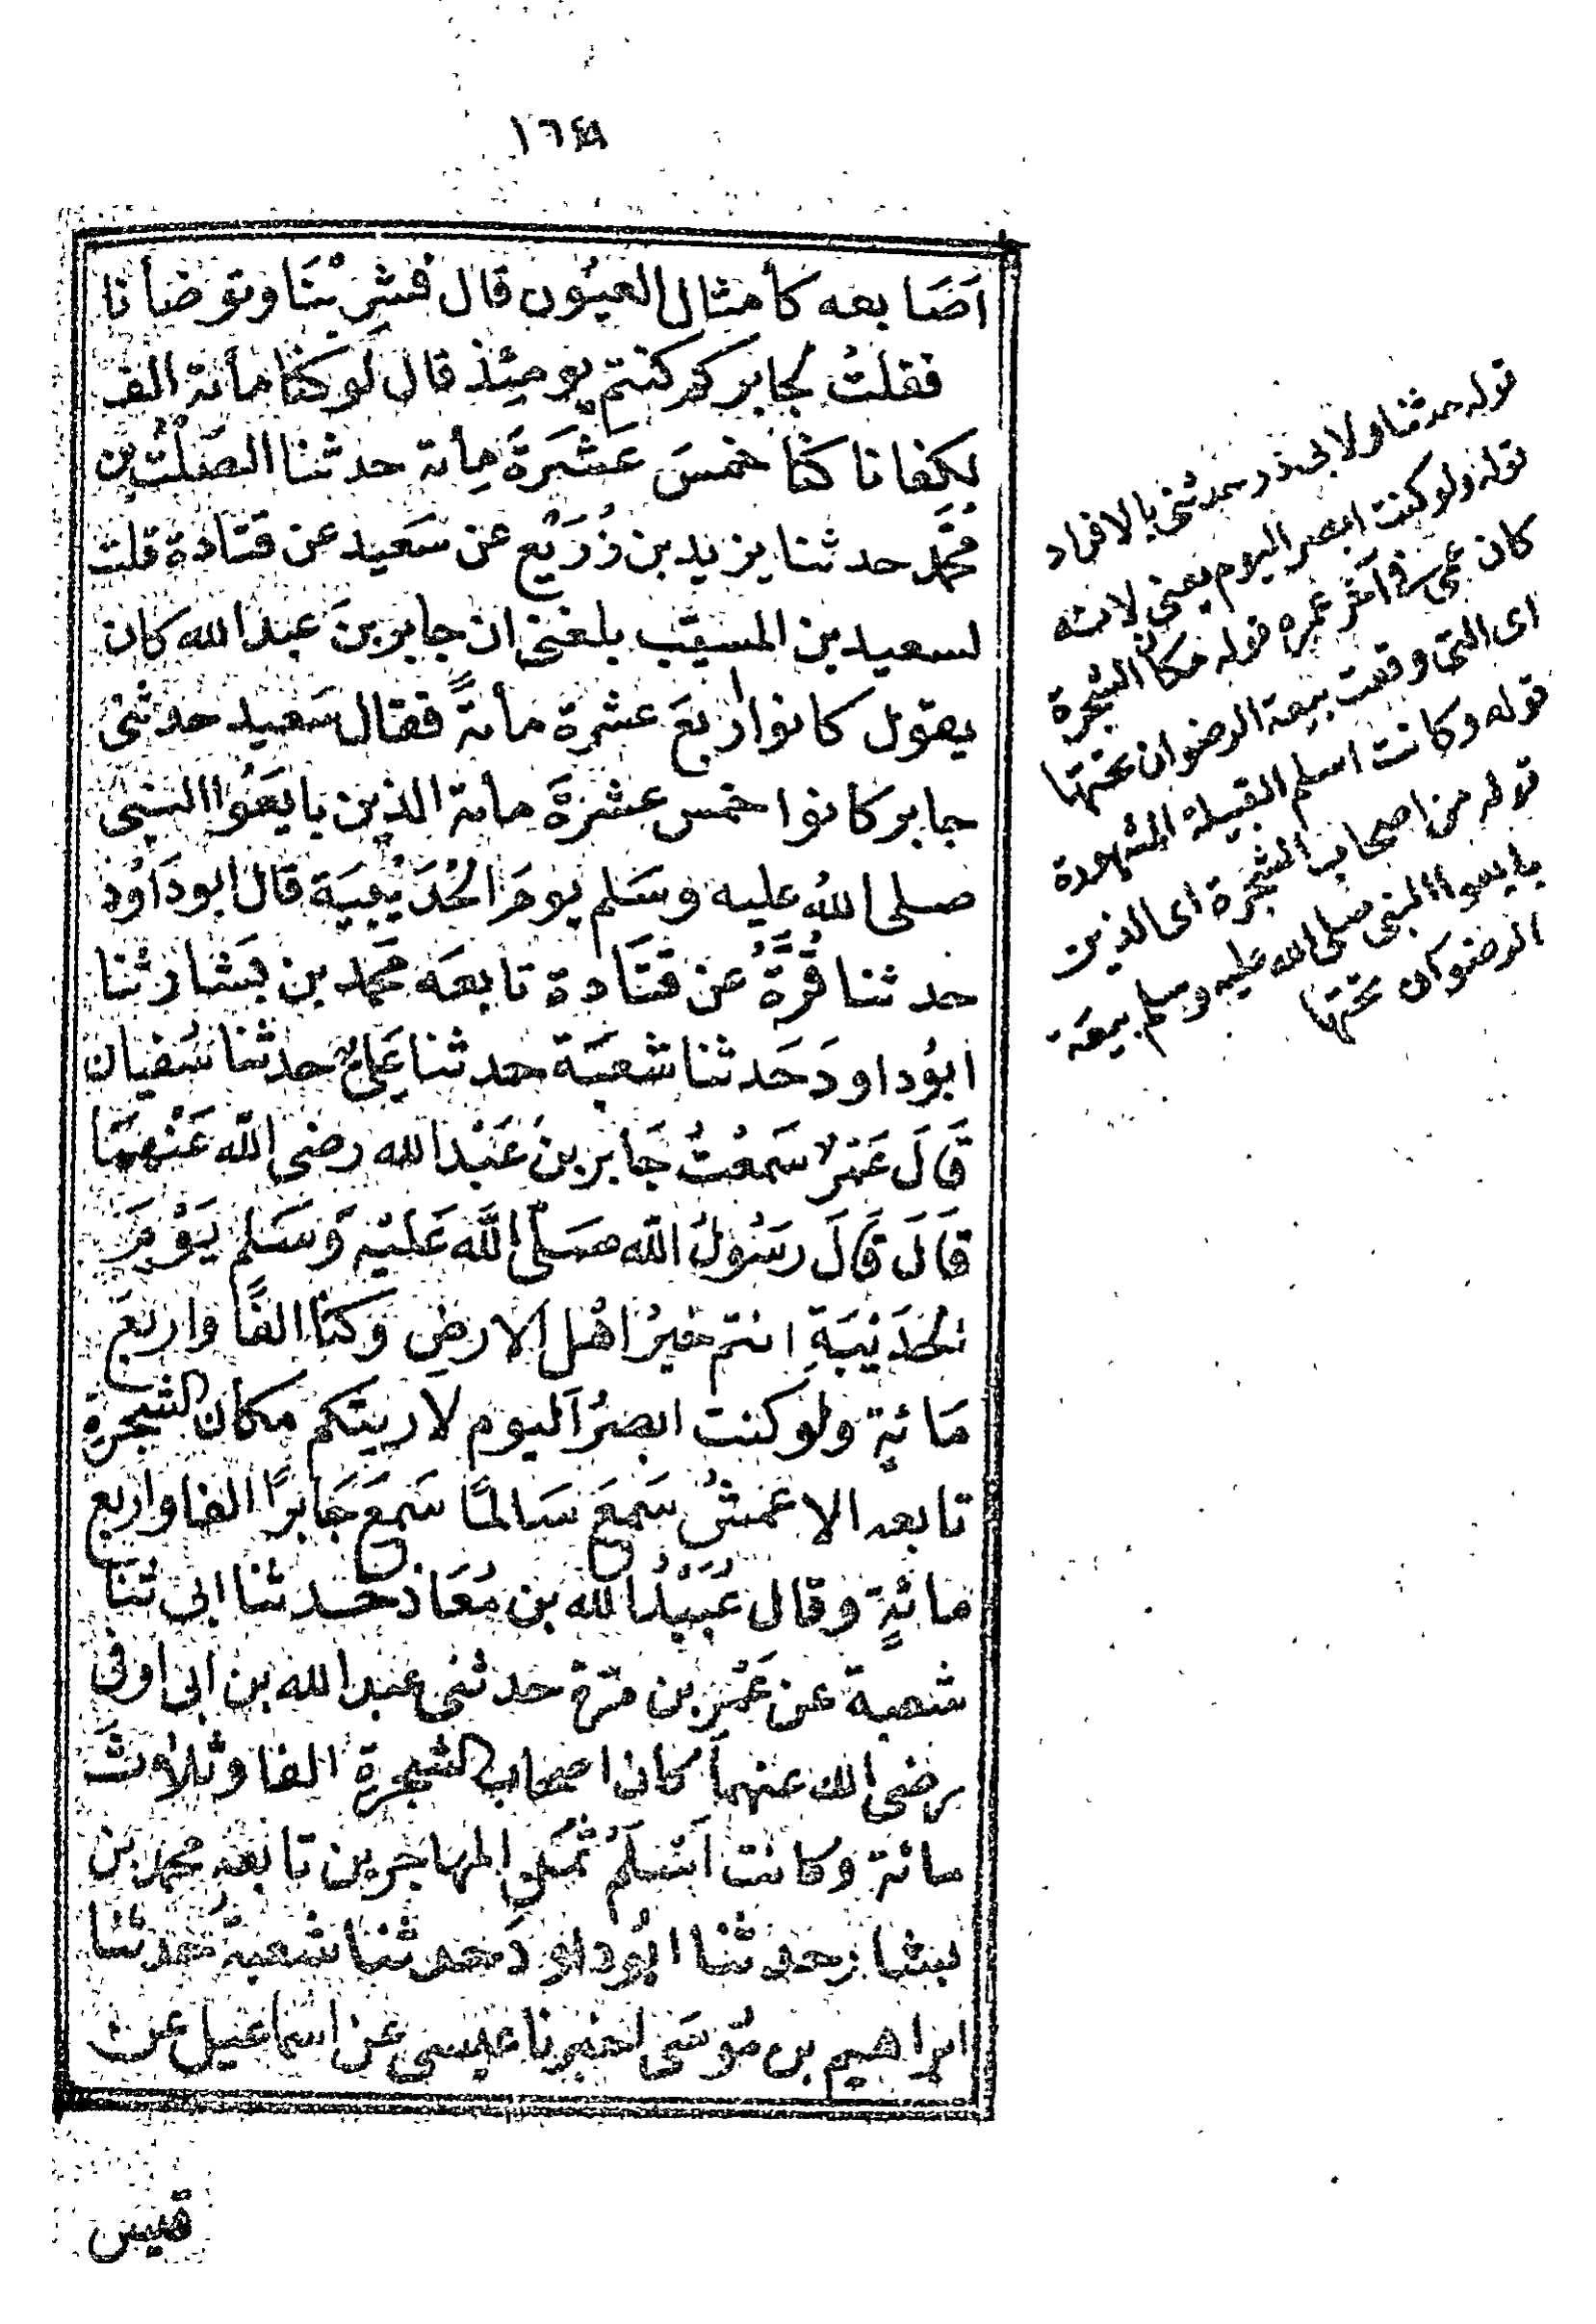 ١٦٤٨
اَصَابعه كأمثال العيُون قال فشرِبْنَا وتوضأنا
فقلتُ لجابر كم كنتم يومِئذ قال لَو كنّا مأئة الف
لكفانا كنّا خمسَ عَشَرَةَ مِأئة حدثنا الصَّلْتُ بن
مُحَمَّد حدثنا يزيد بن زُرَيْع عن سَعيد عن قتَادة قلت
لسعيد بن المسيّب بلغنى ان جابر بنَ عبد الله كان
يقول كانوا اربعَ عشرة مأئةً فقال سَعيد حدثنى
جابر كانوا خمس عشرَةَ مأئة الذين بايَعُوا النبى
صلى اللهُ عليه وسَلم يومَ الحُدَيْبِيَة قال ابو دَاوُد
حدثنا قُرَّةُ عن قتَادة تابعَه محَمد بن بَشار ثنا
ابوُ داود حَدثنا شعبَة حدثنا عَلىٌّ حدثنا سُفيان
قَالَ عَمْرٌو سَمعْتُ جَابر بنَ عَبْد الله رضى الله عَنْهمَا
قَالَ قَالَ رسَوُلُ الله صَلى الله عَليْه وَسَلم يَوْمَ
الحُدَيْبيَةِ انتم خيرُ اهْل الارضِ وَكنّا الفًا واربعَ
مَائةٍ ولو كنت ابصرُ اليوم لاريتكم مكان الشجرة
تابعه الاعمشُ سَمعَ سَالمًا سَمعَ جَابرًا الفا واربع
مائةٍ وقال عُبَيْدُ الله بن مُعَاذ حدثنا ابى ثنَا
شعبة عن عَمْرو بن مرّة حدثنى عبد الله بن ابى اوفى
رضى الله عنهما كان اصحاب الشجرة الفا وثلاث
مائة وكانت اَسْلَمُ ثمُن المهاجرين تابعه محمد بن
بشار حدثنا ابوُ داود حدثنا شعبةُ حَدثنا
ابراهيم بن مُوسَى اخبرنا عيسى عن اسماعيل عن
قيس
قوله حدثنا ولابى ذر حدثنى بالافراد
قوله ولو كنت ابصر اليوم يعنى لانه
كان عمى فى آخر عمره قوله مكان الشجرة
اى التى وقعت بيعة الرضوان تحتها
قوله وكانت اسلم القبيلة المشهورة
قوله من اصحاب الشجرة اى الذين
بايعوا النبى صلى الله عليه وسلم بيعة
الرضوان تحتها